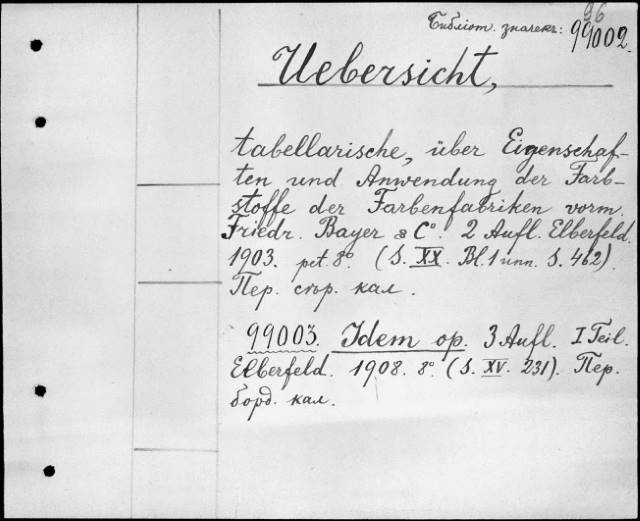 96
Библіот. значекъ: 99002.
Uebersicht,
tabellarische, über Eigenschaf-
ten und Anwendung der Farb-
stoffe der Farbenfabriken vorm.
Friedr. Bayer & Cº. 2 Aufl. Elberfeld.
1903. pet. 8º. (S. XX. Bl. 1 unn. S. 462).
Пер. стр. кал.
99003. Idem op. 3 Aufl. I Teil.
Elberfeld. 1908. 8º. (S. XV. 231). Пер.
борд. кал.